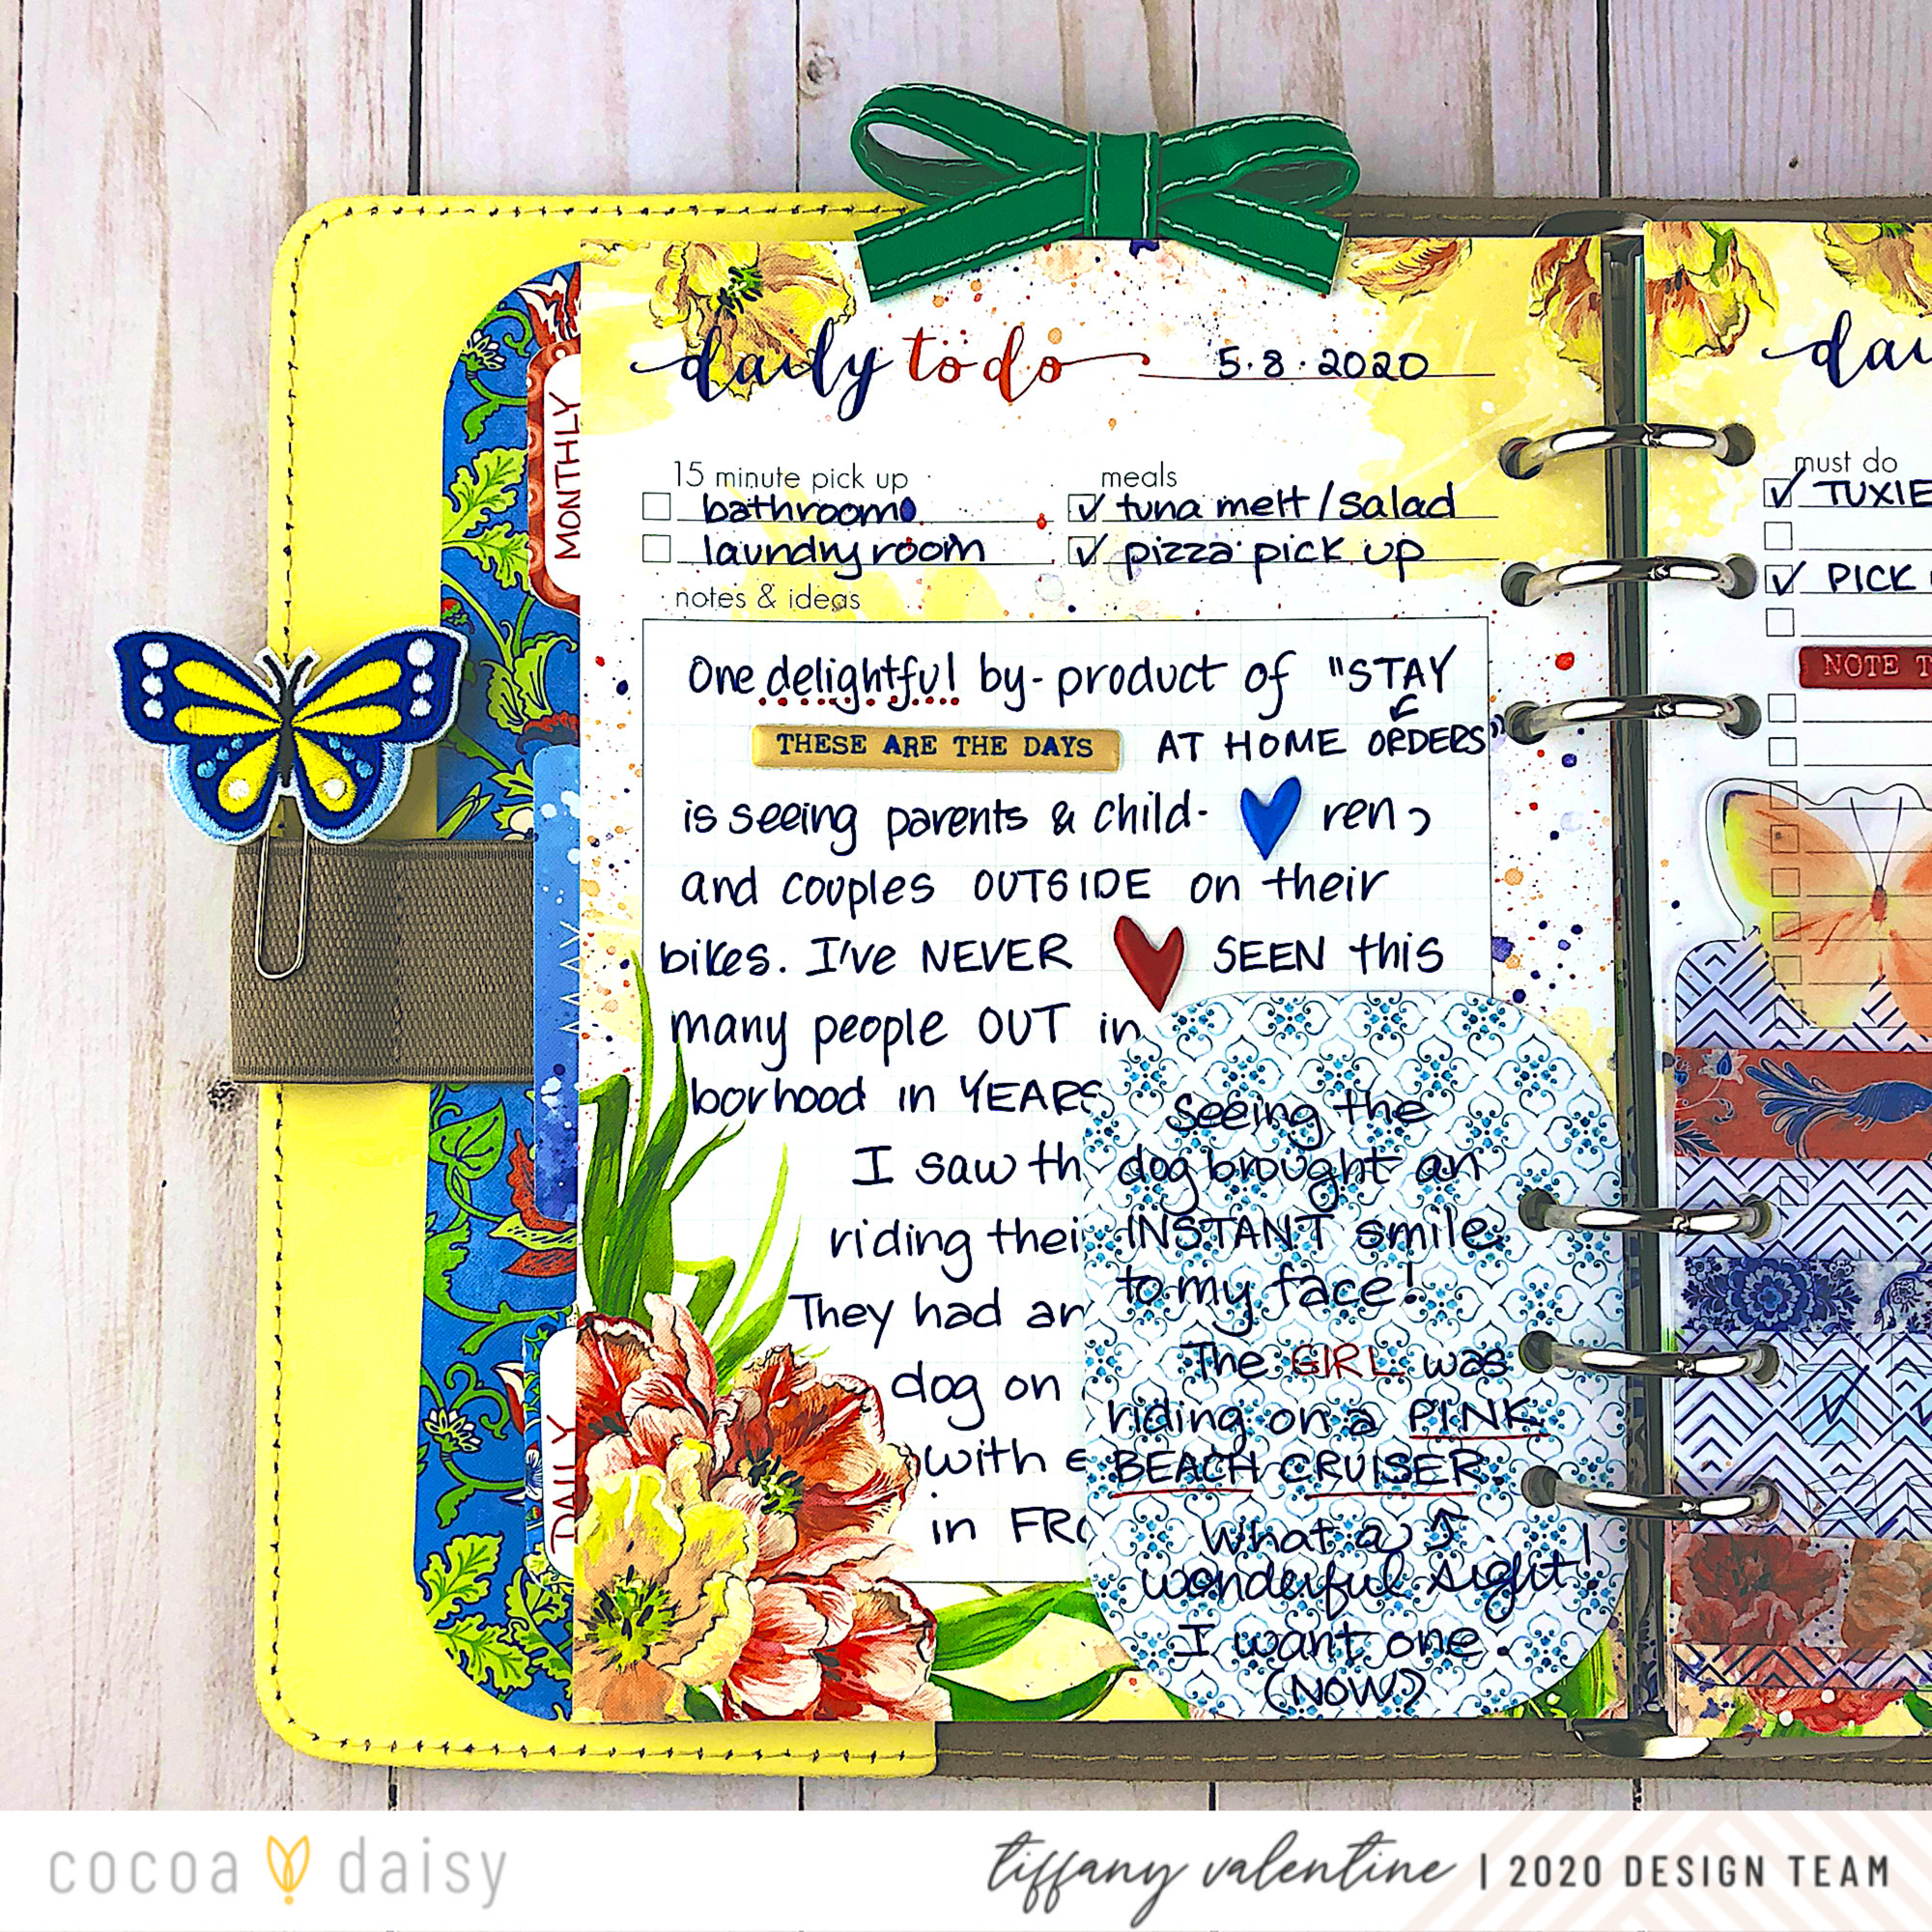 daily to do 5.8.2020
15 minute pick up
bathroom
laundry room
meals
tuna melt/salad
pizza pick up
notes & ideas
One delightful by-product of "STAY
AT HOME ORDERS"
THESE ARE THE DAYS
is seeing parents & child- ren,
and couples OUTSIDE on their
bikes. I've NEVER SEEN this
many people OUT in
borhood in YEARS
I saw th
riding thei
They had an
dog on
with e
in FRO
Seeing the
dog brought an
INSTANT smile
to my face!
The GIRL was
riding on a PINK
BEACH CRUISER.
What a
wonderful sight!
I want one.
(NOW?)
MONTHLY
MAY
DAILY
dai
must do
TUXIE
PICK
NOTE T
cocoa daisy
tiffany valentine | 2020 DESIGN TEAM